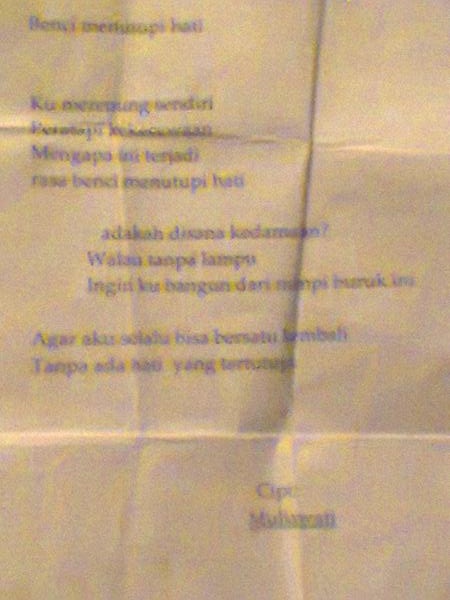 Benci menutupi hati
Ku merenung sendiri
Peratapi kekecewaan
Mengapa ini terjadi
rasa benci menutupi hati
adakah disana kedamaian?
Walau tanpa lampu
Ingin ku bangun dari mimpi buruk ini
Agar aku selalu bisa bersatu kembali
Tanpa ada hati yang tertutupi
Cipt: